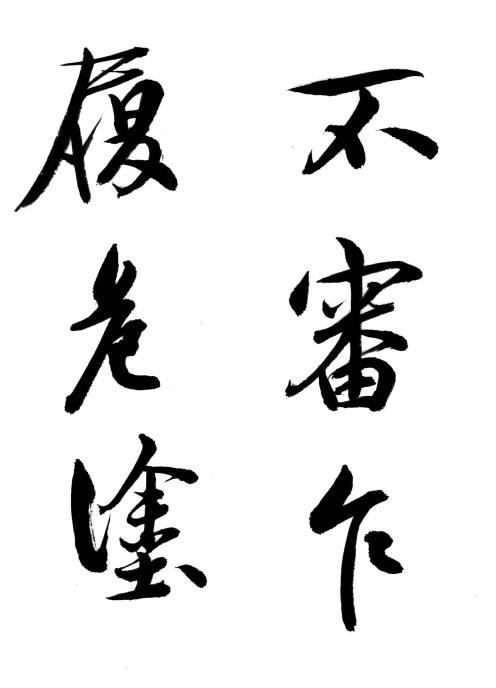 不審乍
履危塗